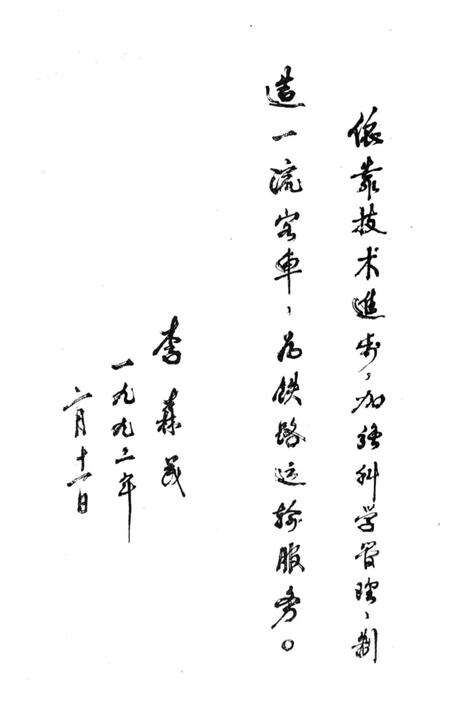 依靠技术進步，加强科学管理，制
造一流客車，为铁路运输服务。
李森茂
一九九二年
六月十一日